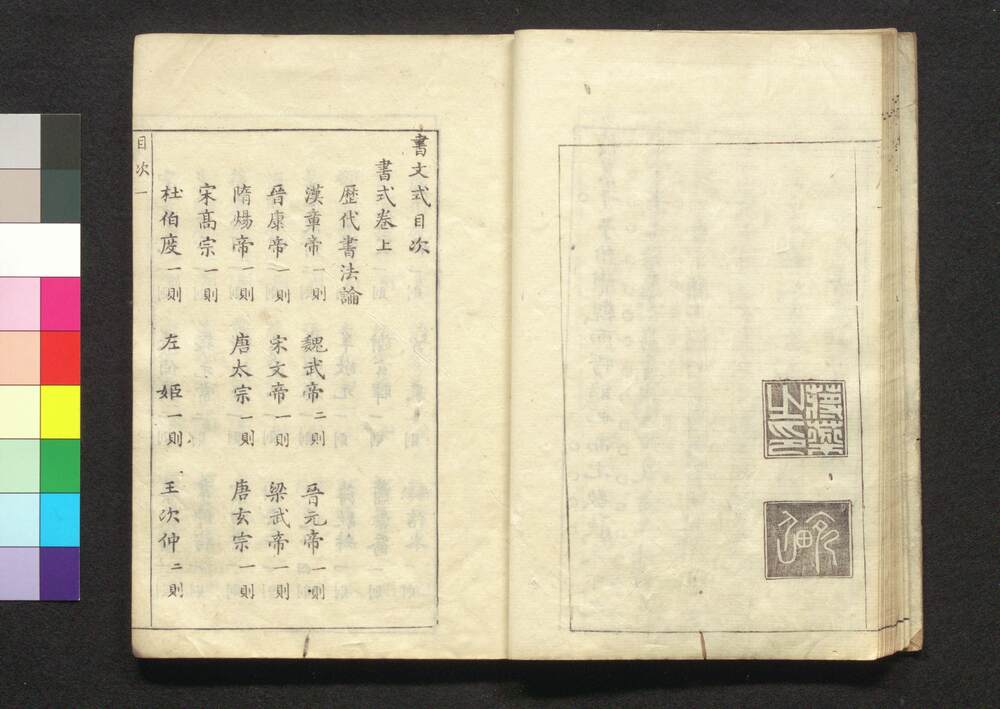 之印
書文式目次
書式卷上
歷代書法論
漢章帝一則 魏武帝二則 晉元帝一則
晉康帝一則 宋文帝一則 梁武帝一則
隋煬帝一則 唐太宗一則 唐玄宗一則
宋髙宗一則
杜伯度一則 左姬一則 王次仲二則
目次 一